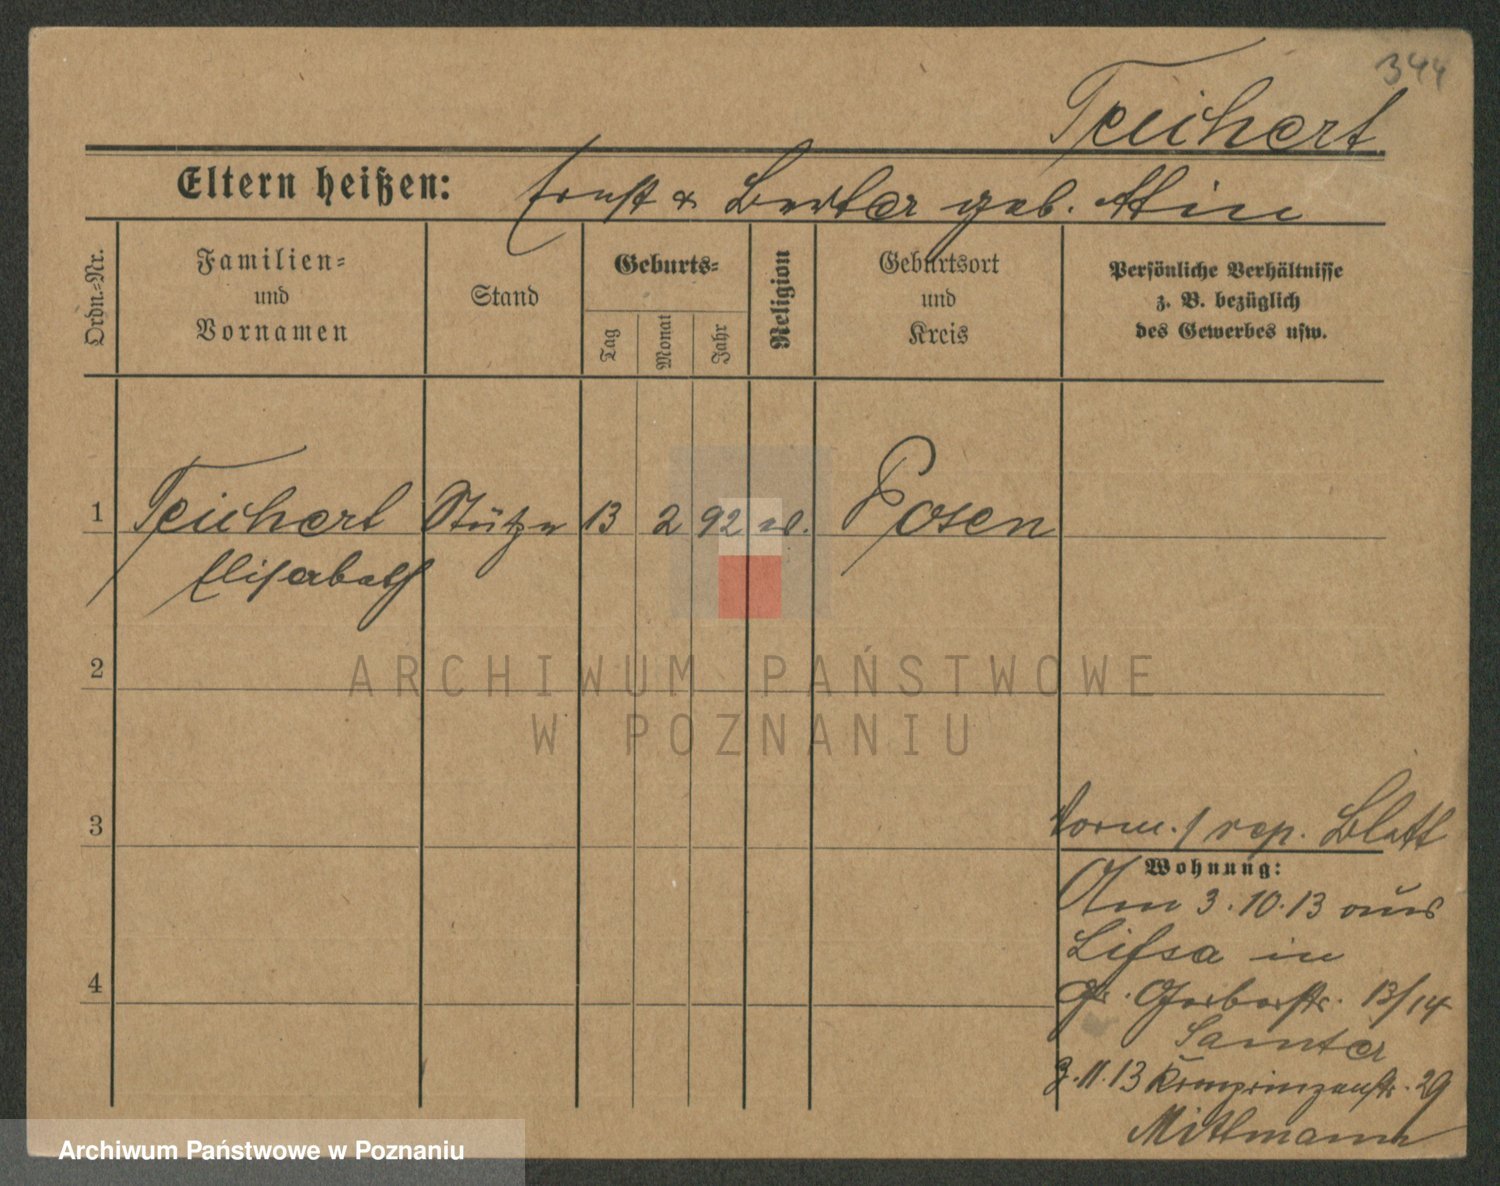 344
Teichert
Eltern heißen: Ernst & Berta geb.
Ordn.-Nr.
Familien-
und
Vornamen
Stand
Geburts-
Tag
Monat
Jahr
Religion
Geburtsort
und
Kreis
Persönliche Verhältnisse
z. B. bezüglich
des Gewerbes usw.
1 Teichert Stütze 13 2 92 Posen
Elisabeth
2
ARCHIWUM PAŃSTWOWE
W POZNANIU
3
rep. Blatt
Wohnung:
Am 3.10.13 aus
Lissa in
Gr. Gerberstr. 13/14
Samter
3.11.13 Kronprinzenstr. 29
Mittmann
4
Archiwum Państwowe w Poznaniu